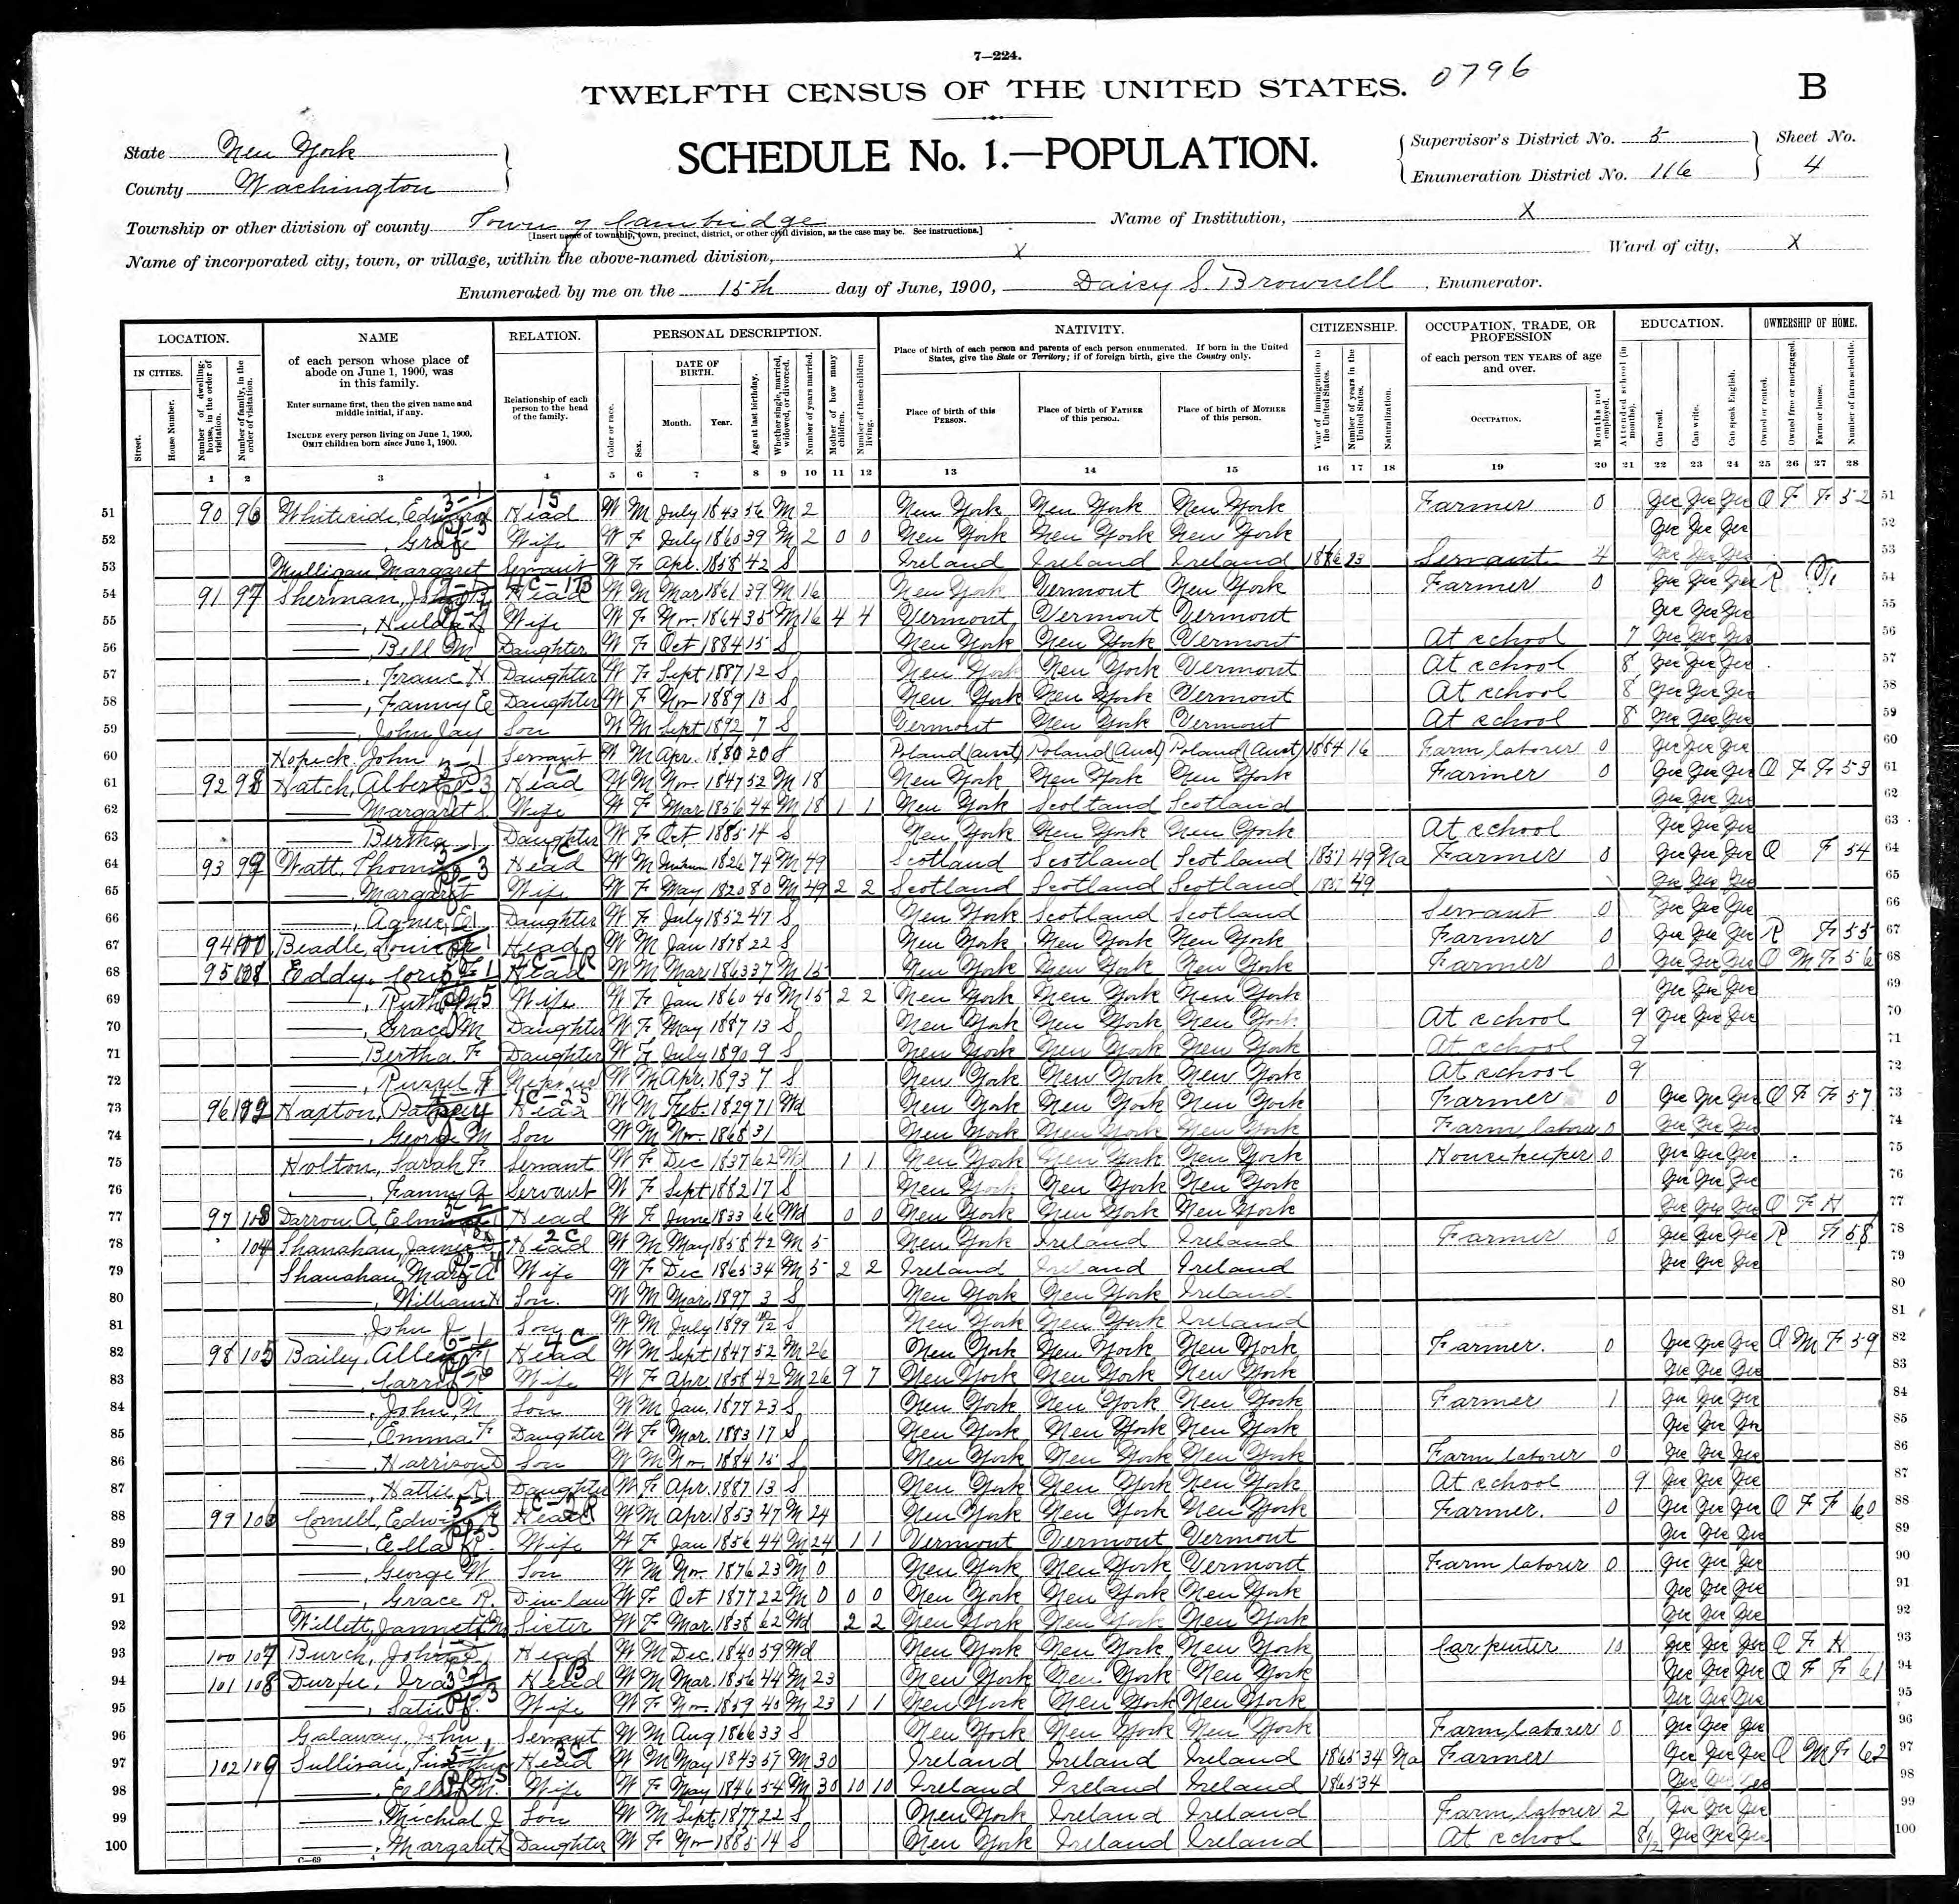 7—224.
TWELFTH CENSUS OF THE UNITED STATES. 0796 B
State New York
SCHEDULE No. 1.—POPULATION.
Supervisor's District No. 5 Sheet No.
County Washington
Enumeration District No. 116 4
Township or other division of county Town of Cambridge Name of Institution, X
[Insert name of township, town, precinct, district, or other civil division, as the case may be. See instructions.]
Name of incorporated city, town, or village, within the above-named division, X Ward of city, X
Enumerated by me on the 15th day of June, 1900, Daisy S. Brownell, Enumerator.
LOCATION. NAME RELATION. PERSONAL DESCRIPTION. NATIVITY. CITIZENSHIP. OCCUPATION, TRADE, OR PROFESSION EDUCATION. OWNERSHIP OF HOME.
IN CITIES. Street. House Number. Number of dwelling-house, in the order of visitation. Number of family, in the order of visitation.
of each person whose place of abode on June 1, 1900, was in this family.
Enter surname first, then the given name and middle initial, if any.
INCLUDE every person living on June 1, 1900.
OMIT children born since June 1, 1900.
Relationship of each person to the head of the family.
Color or race. Sex. DATE OF BIRTH. Month. Year. Age at last birthday. Whether single, married, widowed, or divorced. Number of years married. Mother of how many children. Number of these children living.
Place of birth of each person and parents of each person enumerated. If born in the United States, give the State or Territory; if of foreign birth, give the Country only.
Place of birth of this PERSON. Place of birth of FATHER of this person. Place of birth of MOTHER of this person.
Year of immigration to the United States. Number of years in the United States. Naturalization.
of each person TEN YEARS of age and over.
OCCUPATION. Months not employed.
Attended school (in months). Can read. Can write. Can speak English.
Owned or rented. Owned free or mortgaged. Farm or house. Number of farm schedule.
1 2 3 4 5 6 7 8 9 10 11 12 13 14 15 16 17 18 19 20 21 22 23 24 25 26 27 28
51 90 96 Whiteside, Edward Head W M July 1843 56 M 2 New York New York New York Farmer 0 Yes Yes Yes O F F 52 51
52 —, Grace Wife W F July 1860 39 M 2 0 0 New York New York New York Yes Yes Yes 52
53 Mulligan Margaret Servant W F Apr. 1858 42 S Ireland Ireland Ireland 1876 23 Servant 4 Yes Yes Yes 53
54 91 97 Sherman, Head W M Mar 1861 39 M 16 New York Vermont New York Farmer 0 Yes Yes Yes R 54
55 —, Hulda Wife W F Nov. 1864 35 M 16 4 4 Vermont Vermont Vermont Yes Yes Yes 55
56 —, Bell M Daughter W F Oct 1884 15 S New York New York Vermont At school 7 Yes Yes Yes 56
57 —, Franc H Daughter W F Sept 1887 12 S New York New York Vermont At school 8 Yes Yes Yes 57
58 —, Fanny E Daughter W F Nov 1889 10 S New York New York Vermont At school 8 Yes Yes Yes 58
59 —, John Jay Son W M Sept 1892 7 S Vermont New York Vermont At school 8 Yes Yes Yes 59
60 Hopeck John Servant W M Apr. 1880 20 S Poland (Aust) Poland (Aust) Poland (Aust) 1884 16 Farm laborer 0 Yes Yes Yes 60
61 92 98 Hatch, Albert Head W M Nov. 1847 52 M 18 New York New York New York Farmer 0 Yes Yes Yes O F F 53 61
62 — Margaret S Wife W F Mar 1856 44 M 18 1 1 New York Scotland Scotland Yes Yes Yes 62
63 — Bertha Daughter W F Oct 1885 14 S New York New York New York At school Yes Yes Yes 63
64 93 99 Watt, Thomas Head W M 1826 74 M 49 Scotland Scotland Scotland 1851 49 Na Farmer 0 Yes Yes Yes O F 54 64
65 — Margaret Wife W F May 1820 80 M 49 2 2 Scotland Scotland Scotland 49 Yes Yes Yes 65
66 —, Agnes E Daughter W F July 1852 47 S New York Scotland Scotland Servant 0 Yes Yes Yes 66
67 94 100 Beadle, Louis Head W M Jan 1878 22 S New York New York New York Farmer 0 Yes Yes Yes R F 55 67
68 95 101 Eddy, Head W M Mar 1863 37 M 15 New York New York New York Farmer 0 Yes Yes Yes O M F 56 68
69 —, Ruth Wife W F Jan 1860 40 M 15 2 2 New York New York New York Yes Yes Yes 69
70 —, Grace M Daughter W F May 1887 13 S New York New York New York At school 9 Yes Yes Yes 70
71 —, Bertha F Daughter W F July 1890 9 S New York New York New York At school 9 71
72 —, Russel Nephew W M Apr. 1893 7 S New York New York New York At school 9 72
73 96 102 Haxton, Head W M Feb. 1829 71 Wd New York New York New York Farmer 0 Yes Yes Yes O F F 57 73
74 —, George M Son W M Nov. 1868 31 New York New York New York Farm laborer 0 Yes Yes Yes 74
75 Holton, Sarah F. Servant W F Dec 1837 62 Wd 1 1 New York New York New York Housekeeper 0 Yes Yes Yes 75
76 —, Fanny A Servant W F Sept 1882 17 S New York New York New York Yes Yes Yes 76
77 97 103 Darrow A, Head W F June 1833 66 Wd 0 0 New York New York New York Yes Yes Yes O F H 77
78 104 Shanahan, James Head W M May 1858 42 M 5 New York Ireland Ireland Farmer 0 Yes Yes Yes R F 58 78
79 Shanahan Mary A Wife W F Dec 1865 34 M 5 2 2 Ireland Ireland Ireland Yes Yes Yes 79
80 —, William H Son. W M Mar. 1897 3 S New York New York Ireland 80
81 —, John J Son W M July 1899 10/12 S New York New York Ireland 81
82 98 105 Bailey, Allen Head W M Sept 1847 52 M 26 New York New York New York Farmer. 0 Yes Yes Yes O M F 59 82
83 —, Carrie Wife W F Apr 1858 42 M 26 9 7 New York New York New York Yes Yes Yes 83
84 —, John N. Son W M Jan. 1877 23 S New York New York New York Farmer 1 Yes Yes Yes 84
85 —, Emma F Daughter W F Mar. 1883 17 S New York New York New York Yes Yes Yes 85
86 —, Harrison D Son W M Nov. 1884 15 S New York New York New York Farm laborer 0 Yes Yes Yes 86
87 —, Hattie R Daughter W F Apr. 1887 13 S New York New York New York At school 9 Yes Yes Yes 87
88 99 106 Cornell, Edwin Head W M Apr. 1853 47 M 24 New York New York New York Farmer. 0 Yes Yes Yes O F F 60 88
89 —, Ella Wife W F Jan 1856 44 M 24 1 1 Vermont Vermont Vermont Yes Yes Yes 89
90 —, George W Son W M Nov. 1876 23 M 0 New York New York Vermont Farm laborer 0 Yes Yes Yes 90
91 —, Grace R. D-in-law W F Oct 1877 22 M 0 0 0 New York New York New York Yes Yes Yes 91
92 Willett, Sister W F Mar. 1838 62 Wd 2 2 New York New York New York Yes Yes Yes 92
93 100 107 Burch, John Head W M Dec. 1840 59 Wd New York New York New York Carpenter 10 Yes Yes Yes O F H 93
94 101 108 Durfee, Ira Head W M Mar. 1856 44 M 23 New York New York New York Yes Yes Yes O F F 61 94
95 —, Wife W F Nov. 1859 40 M 23 1 1 New York New York New York Yes Yes Yes 95
96 Galaway, John Servant W M Aug 1866 33 S New York New York New York Farm laborer 0 Yes Yes Yes 96
97 102 109 Sullivan, Timothy Head W M May 1843 57 M 30 Ireland Ireland Ireland 1865 34 Na Farmer Yes Yes Yes O M F 62 97
98 —, Wife W F May 1846 54 M 30 10 10 Ireland Ireland Ireland 1865 34 Yes Yes Yes 98
99 —, Micheal J Son W M Sept. 1877 22 S New York Ireland Ireland Farm laborer 2 Yes Yes Yes 99
100 —, Margaret Daughter W F Nov 1885 14 S New York Ireland Ireland At school 8 1/2 Yes Yes Yes 100
C—69